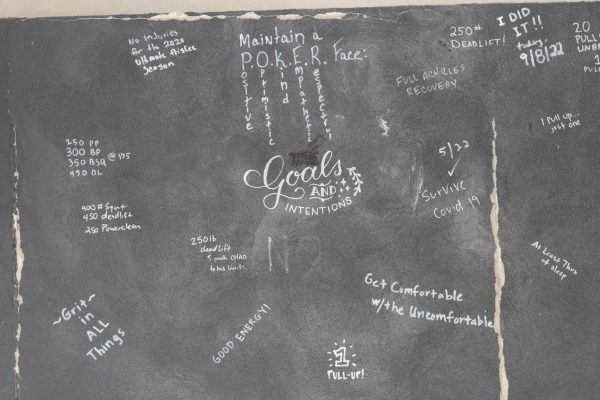 No Injuries
for the 2020
Ultimate Aislee
Season
Maintain a
P.O.K.E.R. Face:
Positive
Optimistic
Kind
Empathetic
Respectful
250#
DEADLIFT!
I DID
IT!!
today,
9/8/22
20
PULL
UNBE
1
PUL
FULL ACHILLES
RECOVERY
I Pull up...
just one
250 PP
300 BP
350 BSQ @ 175
450 DL
400# Squat
450 deadlift
250 Powerclean
Goals
AND
INTENTIONS
5/22
✓
Survive
Covid 19
250lb
deadlift
CHAD
At Least 7hrs
of sleep
Get Comfortable
w/the Uncomfortable
~Grit~
in
ALL
Things
GOOD ENERGY!
1
PULL-UP!